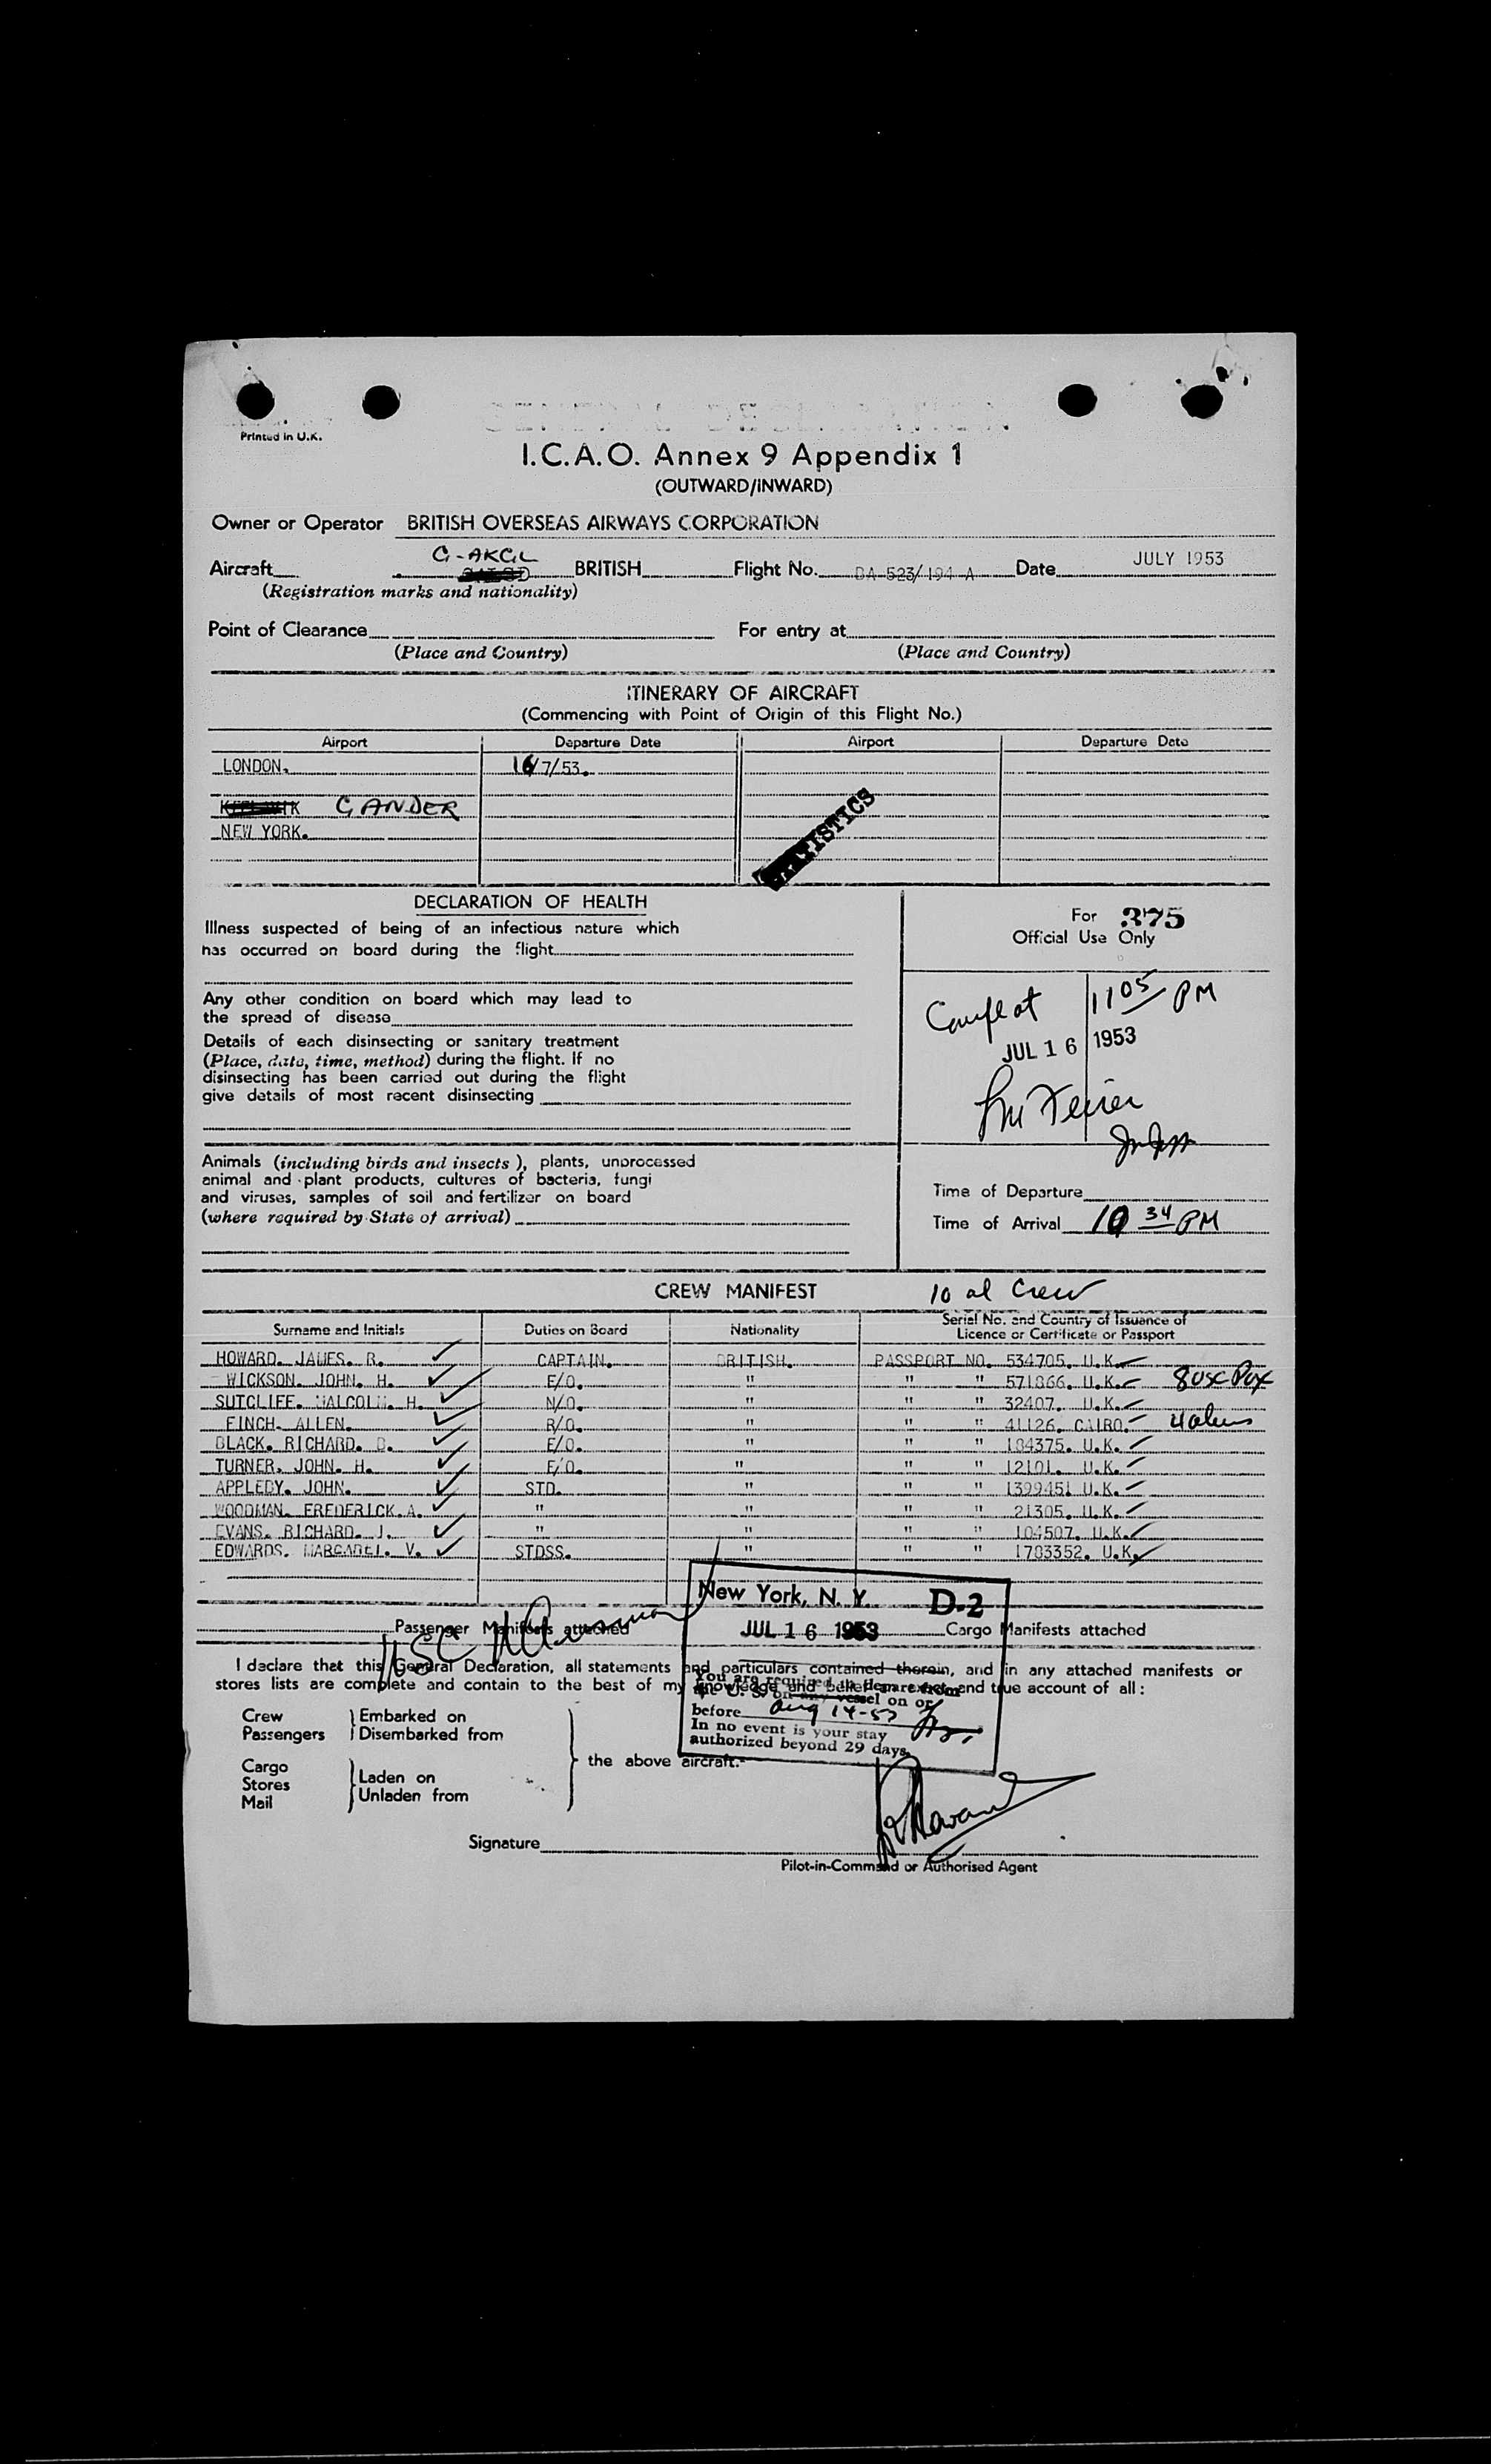 Printed in U.K.
I.C.A.O. Annex 9 Appendix 1
(OUTWARD/INWARD)
Owner or Operator BRITISH OVERSEAS AIRWAYS CORPORATION
G-AKGL
Aircraft BRITISH Flight No. BA 523/194 A Date JULY 1953
(Registration marks and nationality)
Point of Clearance For entry at
(Place and Country) (Place and Country)
ITINERARY OF AIRCRAFT
(Commencing with Point of Origin of this Flight No.)
Airport Departure Date Airport Departure Date
LONDON. 16/7/53.
GANDER
NEW YORK.
STATISTICS
DECLARATION OF HEALTH
Illness suspected of being of an infectious nature which
has occurred on board during the flight
Any other condition on board which may lead to
the spread of disease
Details of each disinsecting or sanitary treatment
(Place, date, time, method) during the flight. If no
disinsecting has been carried out during the flight
give details of most recent disinsecting
For 375
Official Use Only
1105 PM
JUL 16 1953
Animals (including birds and insects), plants, unprocessed
animal and plant products, cultures of bacteria, fungi
and viruses, samples of soil and fertilizer on board
(where required by State of arrival)
Time of Departure
Time of Arrival 10 34 PM
CREW MANIFEST 10 al Crew
Surname and Initials Duties on Board Nationality Serial No. and Country of Issuance of
Licence or Certificate or Passport
HOWARD. JAMES. R. CAPTAIN. BRITISH. PASSPORT NO. 534705. U.K.
WICKSON. JOHN. H. F/O. " " " 571866. U.K. 8 USC Pax
SUTCLIFF. MALCOLM. H. N/O. " " " 32407. U.K.
FINCH. ALLEN. R/O. " " " 41126. CAIRO. 4 aliens
BLACK. RICHARD. D. E/O. " " " 184375. U.K.
TURNER. JOHN. H. E/O. " " " 12101. U.K.
APPLEBY. JOHN. STD. " " " 1399451 U.K.
WOODMAN. FREDERICK.A. " " " " 21305. U.K.
EVANS. RICHARD. J. " " " " 104507. U.K.
EDWARDS. MARGARET. V. STDSS. " " " 1783352. U.K.
Passenger Manifests attached Cargo Manifests attached
New York, N. Y. D-2
JUL 16 1953
You are required to depart from
the U. S. on any vessel on or
before Aug 14-53
In no event is your stay
authorized beyond 29 days.
I declare that this General Declaration, all statements and particulars contained therein, and in any attached manifests or
stores lists are complete and contain to the best of my knowledge and belief an exact and true account of all :
Crew Embarked on
Passengers Disembarked from
Cargo
Stores Laden on
Mail Unladen from
the above aircraft.
Signature
Pilot-in-Command or Authorised Agent